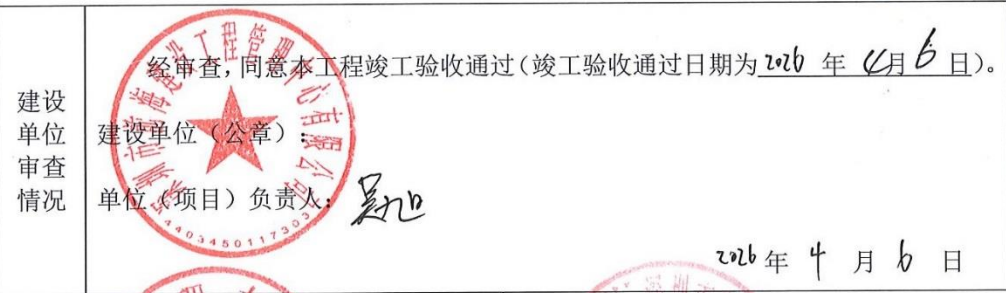 建设
单位
审查
情况
经审查，同意本工程竣工验收通过（竣工验收通过日期为2026 年 4月6 日）。
建设单位（公章）：
单位（项目）负责人：吴旭
2026年 4 月 6 日
建设工程管理中心有限公司
4403450117303